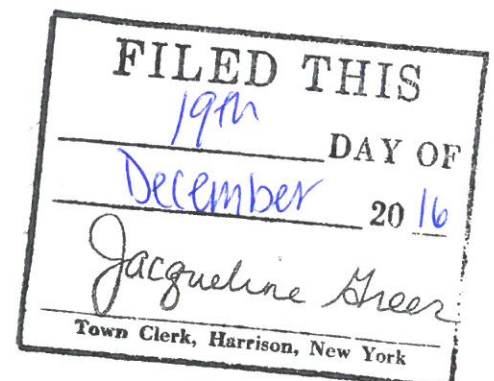 FILED THIS
19th
DAY OF
December 20 16
Jacqueline Greer
Town Clerk, Harrison, New York